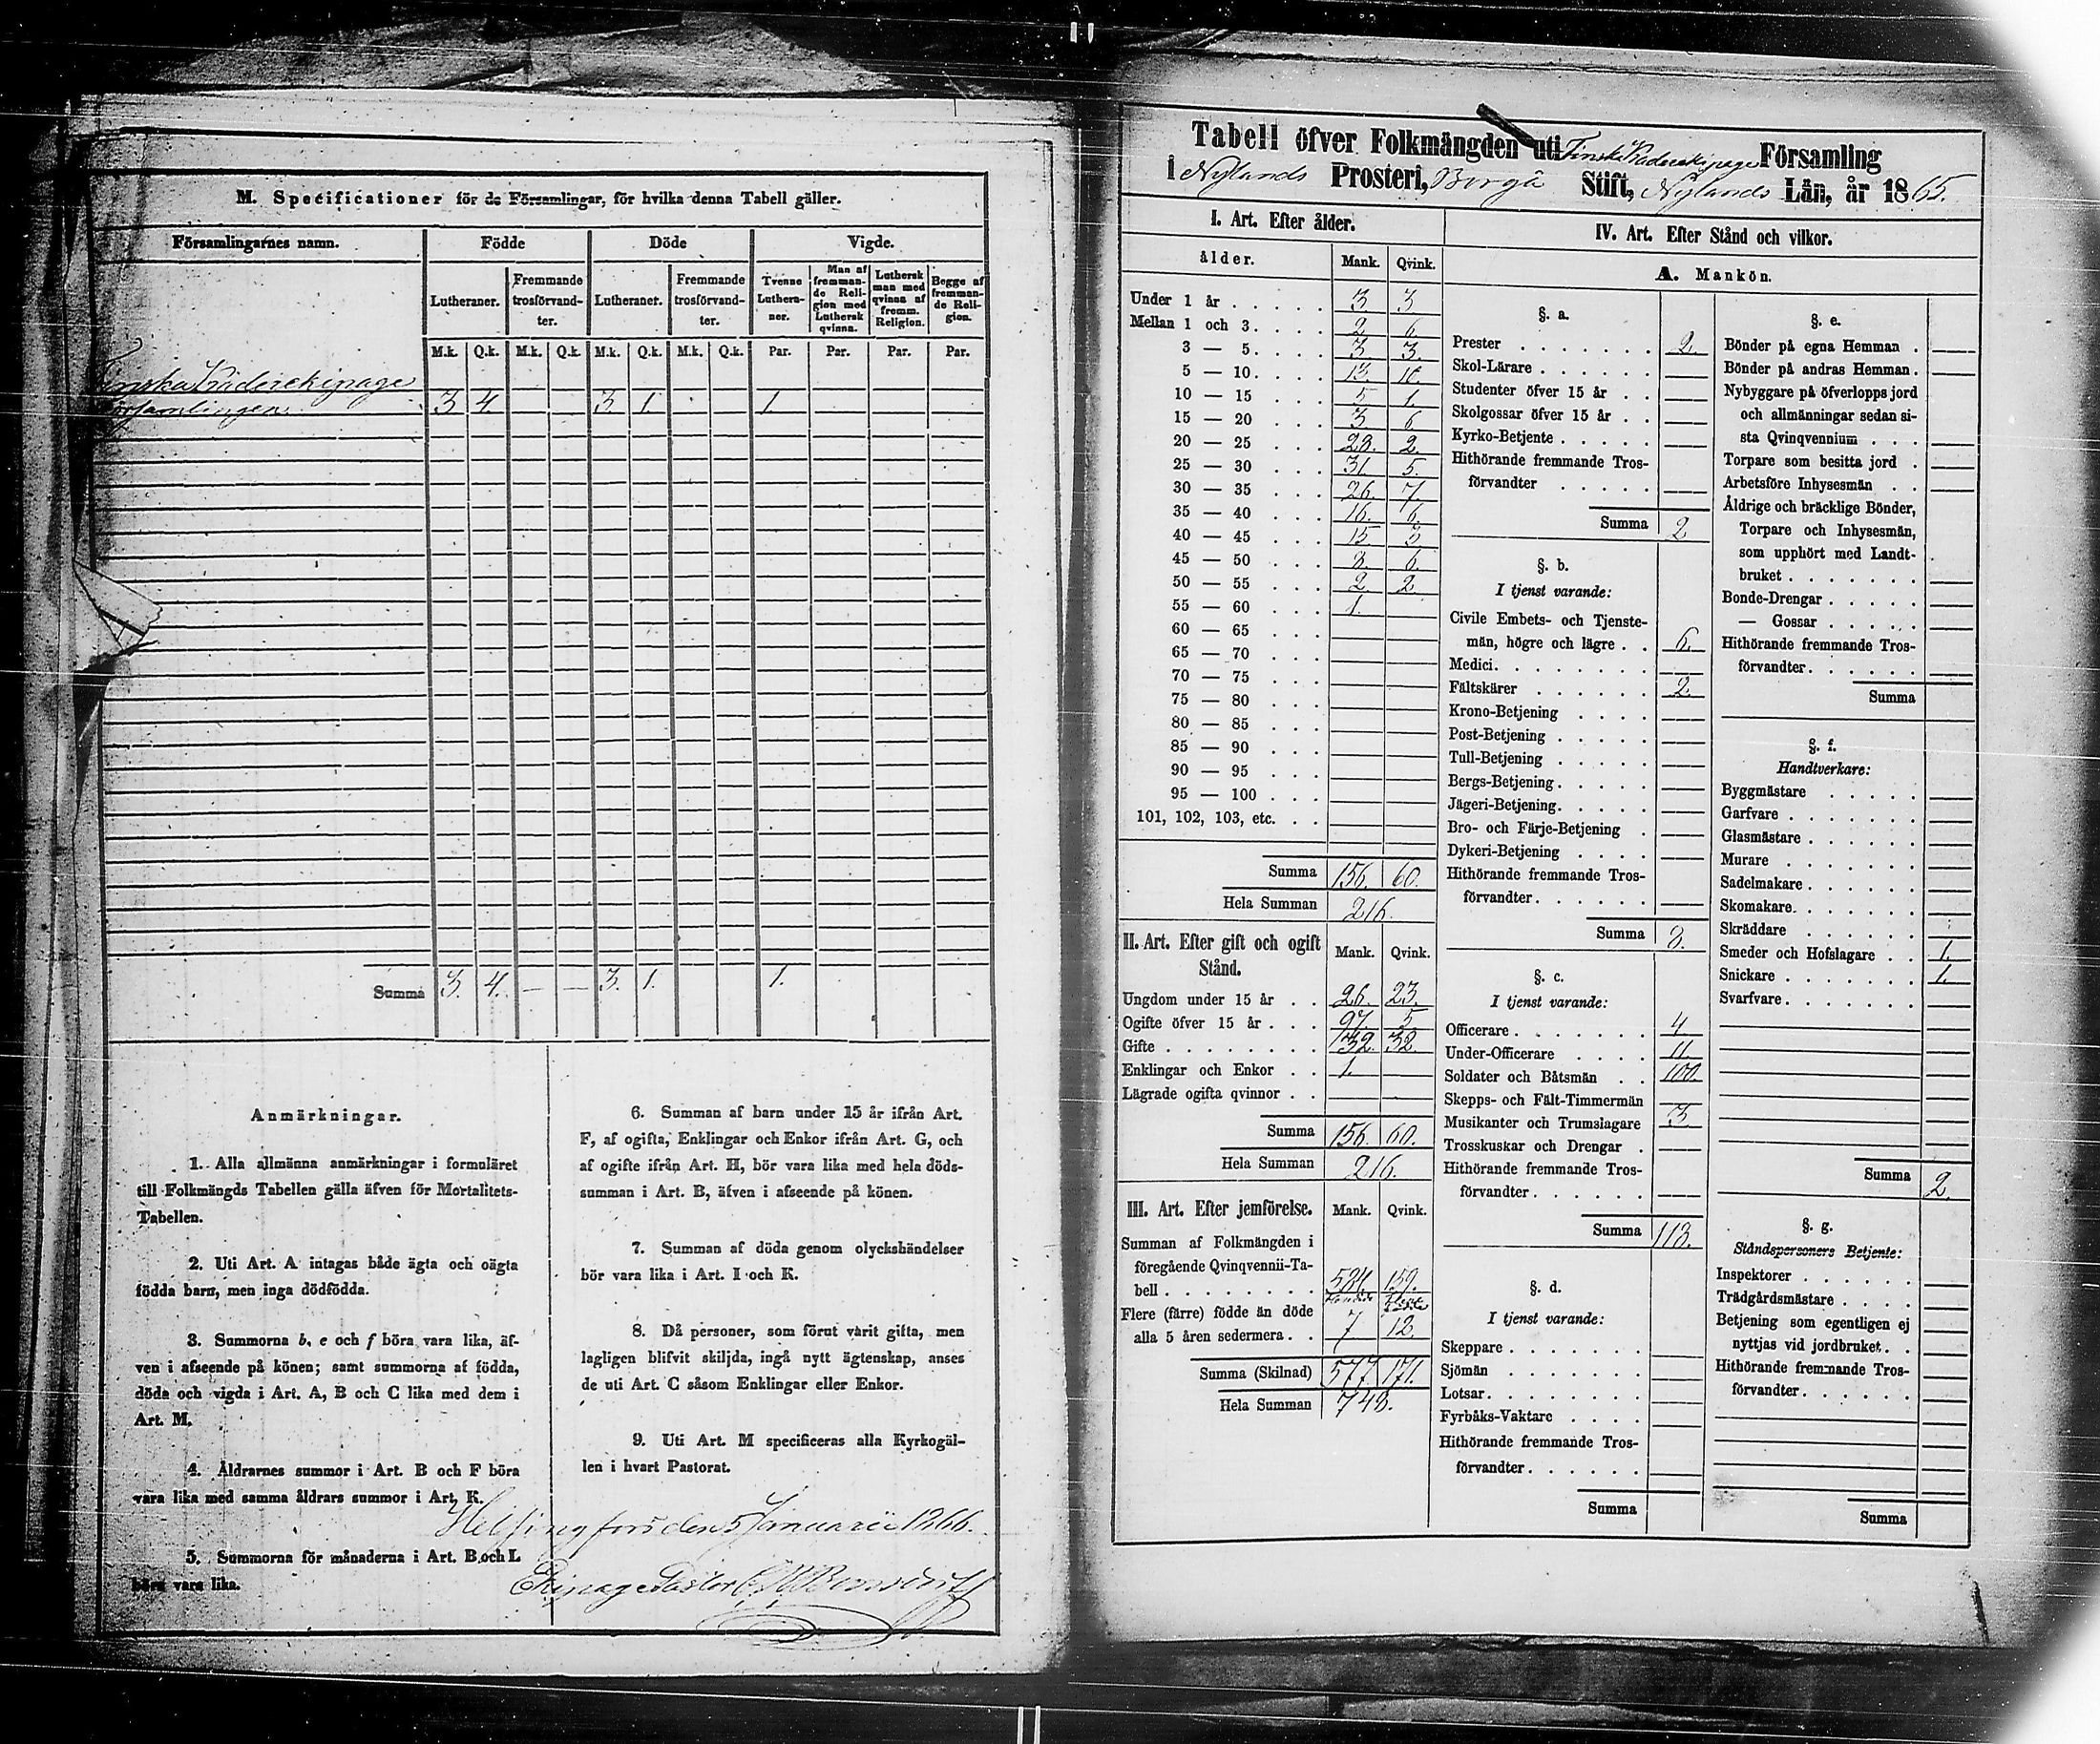 M. Specificationer för de Församlingar, för hvilka denna Tabell gäller.
Församlingarnes namn. Födde Döde Vigde.
Lutheraner. Fremmande trosförvandter. Lutheraner. Fremmande trosförvandter. Tvenne Lutheraner. Man af fremmande Religion med Luthersk qvinna. Luthersk man med qvinna af fremm. Religion. Begge af fremmande Religion.
M.k. Q.k. M.k. Q.k. M.k. Q.k. M.k. Q.k. Par. Par. Par. Par.
Finska Kaderekipage
Församlingen 3 4. — — 3 1. 1.
Summa 3. 4. — — 3. 1. 1.
Anmärkningar.
1. Alla allmänna anmärkningar i formuläret
till Folkmängds Tabellen gälla äfven för Mortalitets-
Tabellen.
2. Uti Art. A intagas både ägta och oägta
födda barn, men inga dödfödda.
3. Summorna b, e och f böra vara lika, äf-
ven i afseende på könen; samt summorna af födda,
döda och vigda i Art. A, B och C lika med dem i
Art. M.
4. Åldrarnes summor i Art. B och F böra
vara lika med samma åldrars summor i Art. K.
5. Summorna för månaderna i Art. B och L
böra vara lika.
6. Summan af barn under 15 år ifrån Art.
F, af ogifta, Enklingar och Enkor ifrån Art. G, och
af ogifte ifrån Art. H, bör vara lika med hela döds-
summan i Art. B, äfven i afseende på könen.
7. Summan af döda genom olyckshändelser
bör vara lika i Art. I och K.
8. Då personer, som förut varit gifta, men
lagligen blifvit skiljda, ingå nytt ägtenskap, anses
de uti Art. C såsom Enklingar eller Enkor.
9. Uti Art. M specificeras alla Kyrkogäl-
len i hvart Pastorat.
Helsingfors den 5 Januarii 1866.
Ekipage Pastor
Tabell öfver Folkmängden uti Finska Kaderekipage Församling
i Nylands Prosteri, Borgå Stift, Nylands Län, år 1865.
I. Art. Efter ålder.
ålder. Mank. Qvink.
Under 1 år . . . . 3. 3
Mellan 1 och 3. . . . 2 6
3 — 5. . . . 3 3.
5 — 10. . . . 13.
10 — 15 . . . 5 1.
15 — 20 . . . 3 6
20 — 25 . . . 28. 2.
25 — 30 . . . 31. 5.
30 — 35 . . . 26. 7.
35 — 40 . . . 16. 6
40 — 45 . . . 15 3
45 — 50 . . . 8. 6.
50 — 55 . . . 2. 2
55 — 60 . . . 1.
60 — 65 . . .
65 — 70 . . .
70 — 75 . . .
75 — 80 . . .
80 — 85 . . .
85 — 90 . . .
90 — 95 . . .
95 — 100 . . .
101, 102, 103, etc. . .
Summa 156. 60.
Hela Summan 216.
II. Art. Efter gift och ogift Stånd. Mank. Qvink.
Ungdom under 15 år . . 26. 23.
Ogifte öfver 15 år . . . 97. 5
Gifte . . . . . . . . 32. 32.
Enklingar och Enkor . . 1.
Lägrade ogifta qvinnor . .
Summa 156. 60.
Hela Summan 216.
III. Art. Efter jemförelse. Mank. Qvink.
Summan af Folkmängden i
föregående Qvinqvennii-Ta-
bell . . . . . . . . 159.
Flere (färre) födde än döde
alla 5 åren sedermera . . 7 12.
Summa (Skilnad) 577 171.
Hela Summan 748.
IV. Art. Efter Stånd och vilkor.
A. Mankön.
§. a.
Prester . . . . . . . 2.
Skol-Lärare . . . . . .
Studenter öfver 15 år . .
Skolgossar öfver 15 år . .
Kyrko-Betjente . . . . .
Hithörande fremmande Tros-
förvandter . . . . .
Summa 2
§. b.
I tjenst varande:
Civile Embets- och Tjenste-
män, högre och lägre . . 6.
Medici. . . . . . . .
Fältskärer . . . . . . 2.
Krono-Betjening . . . .
Post-Betjening . . . . .
Tull-Betjening . . . . .
Bergs-Betjening. . . . .
Jägeri-Betjening. . . . .
Bro- och Färje-Betjening .
Dykeri-Betjening . . . .
Hithörande fremmande Tros-
förvandter . . . . . .
Summa 8.
§. c.
I tjenst varande:
Officerare . . . . . . . 4
Under-Officerare . . . . 11.
Soldater och Båtsmän . . 100.
Skepps- och Fält-Timmermän
Musikanter och Trumslagare 3
Trosskuskar och Drengar .
Hithörande fremmande Tros-
förvandter . . . . . .
Summa 118.
§. d.
I tjenst varande:
Skeppare . . . . . . .
Sjömän . . . . . . .
Lotsar. . . . . . . .
Fyrbåks-Vaktare . . . .
Hithörande fremmande Tros-
förvandter . . . . . .
Summa
§. e.
Bönder på egna Hemman .
Bönder på andras Hemman .
Nybyggare på öfverlopps jord
och allmänningar sedan si-
sta Qvinqvennium . . .
Torpare som besitta jord .
Arbetsföre Inhysesmän . .
Åldrige och bräcklige Bönder,
Torpare och Inhysesmän,
som upphört med Landt-
bruket . . . . . . .
Bonde-Drengar . . . . .
— Gossar . . . . .
Hithörande fremmande Tros-
förvandter. . . . . .
Summa
§. f.
Handtverkare:
Byggmästare . . . . .
Garfvare . . . . . . .
Glasmästare . . . . . .
Murare . . . . . . .
Sadelmakare . . . . . .
Skomakare. . . . . . .
Skräddare . . . . . .
Smeder och Hofslagare . . 1.
Snickare . . . . . . . 1.
Svarfvare . . . . . . .
Summa 2.
§. g.
Ståndspersoners Betjente:
Inspektorer . . . . . .
Trädgårdsmästare . . . .
Betjening som egentligen ej
nyttjas vid jordbruket. . .
Hithörande fremmande Tros-
förvandter . . . . . .
Summa